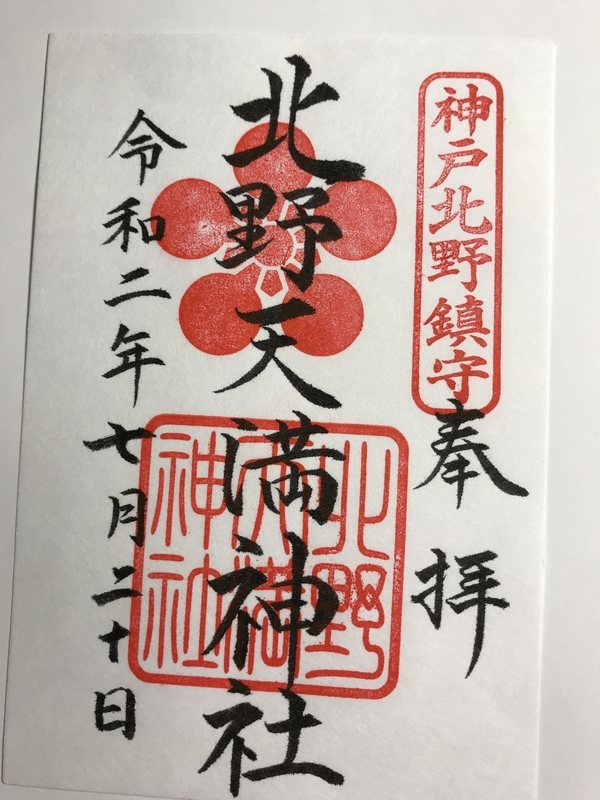 神戸北野鎮守
奉拝
北野天満神社
北野
天満
神社
令和二年七月二十日